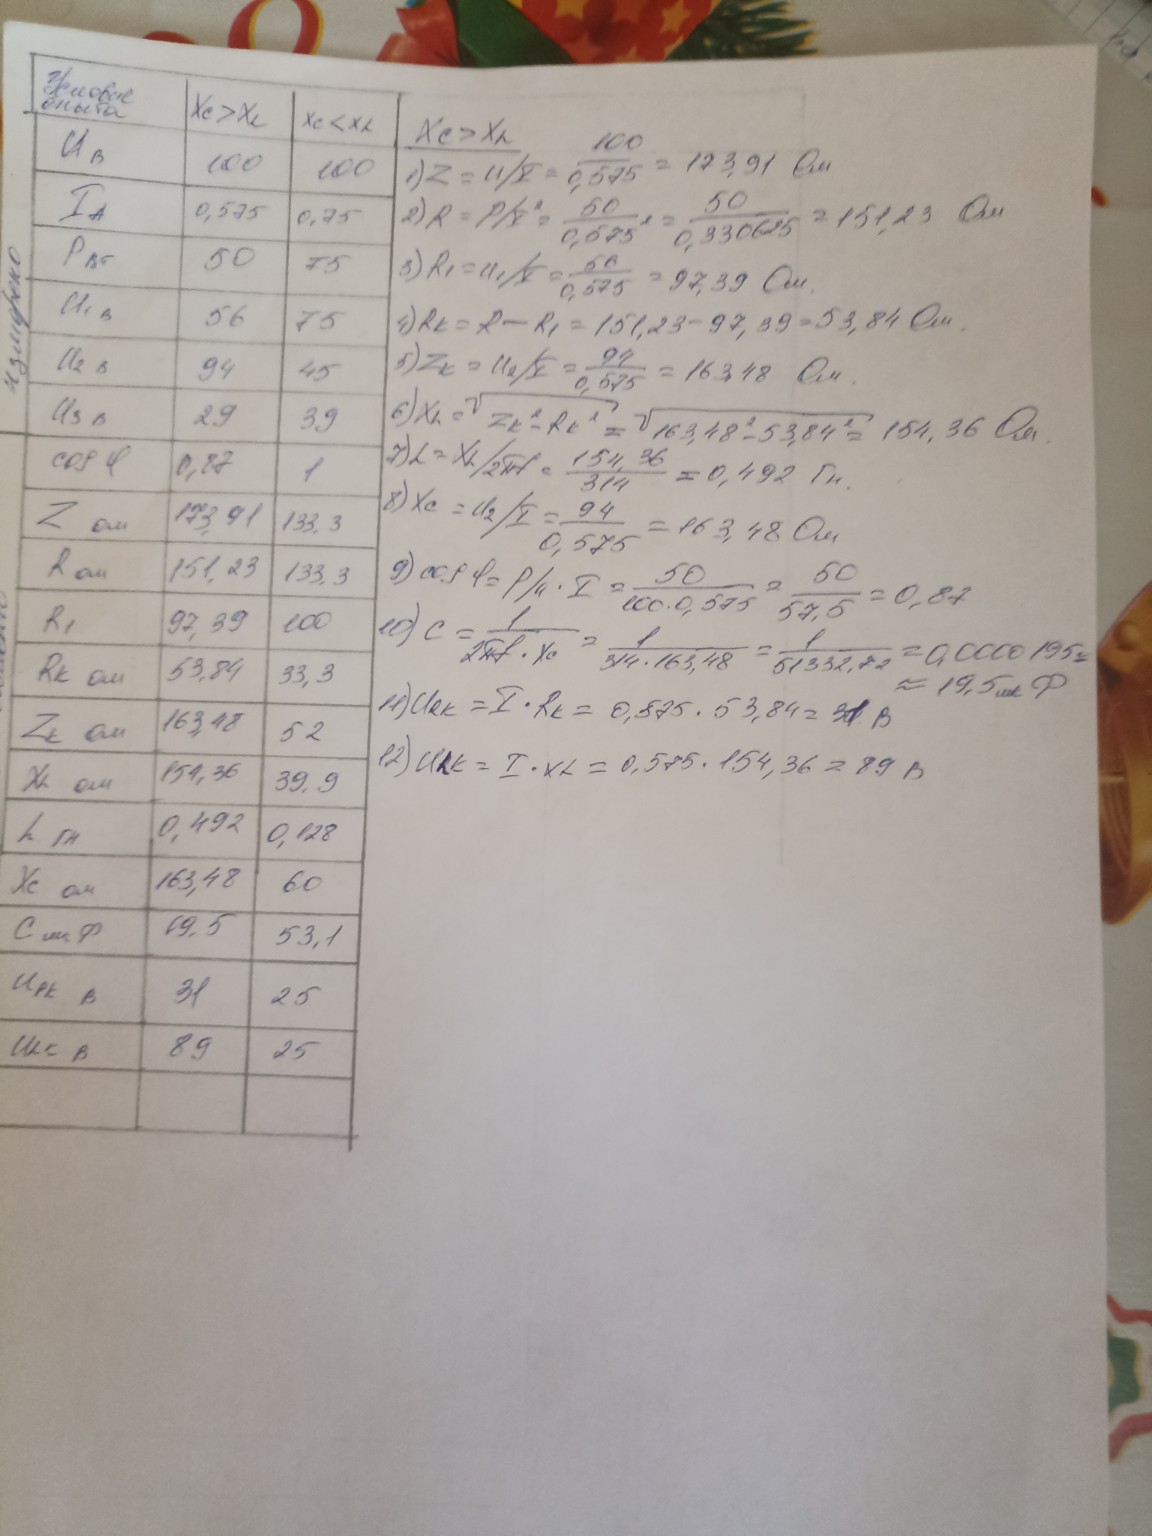 Условие опыта Xc > XL Xc < XL
U В 100 100
I А 0,575 0,75
P Вт 50 75
U1 В 56 75
U2 В 94 45
U3 В 29 39
cos φ 0,87 1
Z ом 173,91 133,3
R ом 151,23 133,3
R1 97,39 100
Rк ом 53,84 33,3
Zк ом 163,48 52
XL ом 154,36 39,9
L Гн 0,492 0,128
Xc ом 163,48 60
C мкФ 19,5 53,1
URK В 31 25
ULK В 89 25
измерено
Xc > XL
1) Z = U/I = 100/0,575 = 173,91 Ом
2) R = P/I² = 50/0,575² = 50/0,330625 = 151,23 Ом
3) R1 = U1/I = 56/0,575 = 97,39 Ом.
4) Rк = R − R1 = 151,23 − 97,39 = 53,84 Ом.
5) Zк = U2/I = 94/0,575 = 163,48 Ом.
6) XL = √Zк² - Rк² = √163,48² - 53,84² = 154,36 Ом.
7) L = XL/2πf = 154,36/314 = 0,492 Гн.
8) Xc = U2/I = 94/0,575 = 163,48 Ом
9) cos φ = P/U · I = 50/100·0,575 = 50/57,5 = 0,87
10) C = 1/2πf · Xc = 1/314·163,48 = 1/51332,72 = 0,0000195 =
≈ 19,5 мк Ф
11) URK = I · Rк = 0,575 · 53,84 = 31 В
12) ULK = I · XL = 0,575 · 154,36 = 89 В